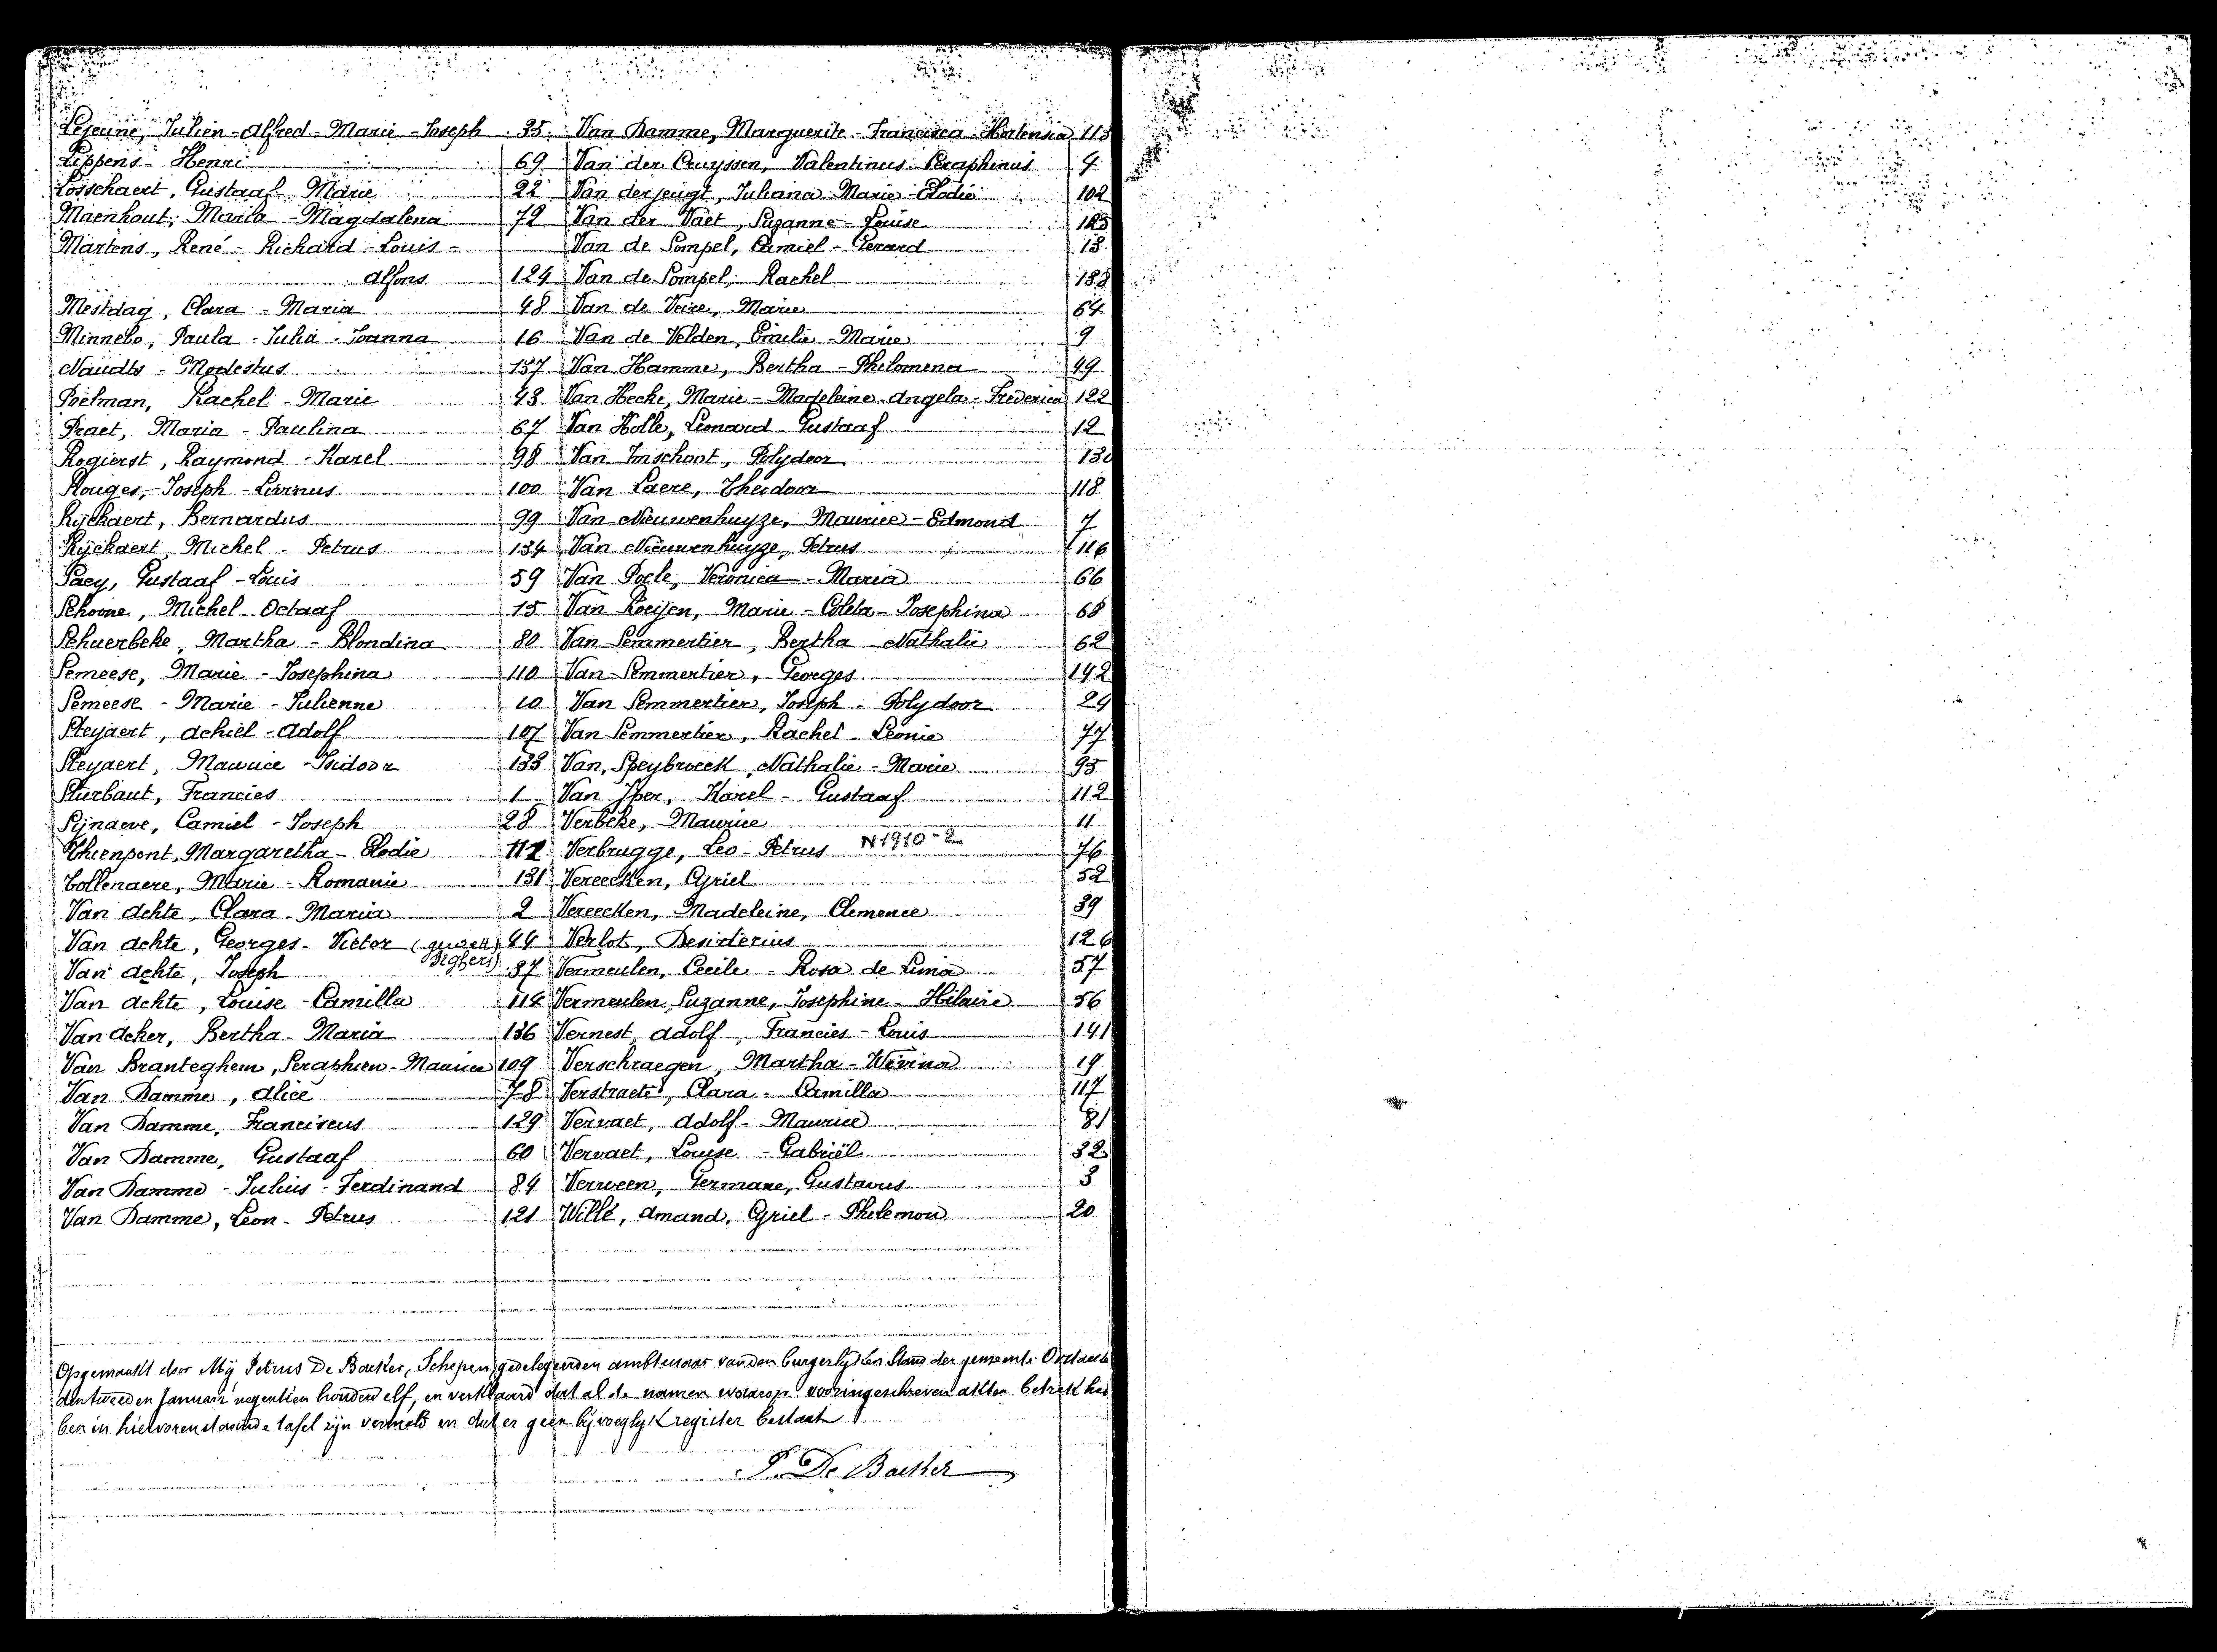 Lejeune, Julien - Alfred - Marie - Joseph 35
Lippens - Henri 69
Losschaert, Gustaaf - Marie 22
Maenhout, Maria - Magdalena 72
Martens, René - Richard - Louis -
Alfons 124
Mestdag, Clara - Maria 48
Minnebo, Paula - Julia - Joanna 16
Naudts - Modestus 137
Poelman, Rachel - Marie 43
Praet, Maria - Paulina 67
Rogierst, Raymond - Karel 98
Rouges, Joseph - Livinus 100
Rijckaert, Bernardus 99
Rijckaert, Michel - Petrus 134
Saey, Gustaaf - Louis 59
Schoone, Michel - Octaaf 15
Schuerbeke, Martha - Blondina 80
Semeese, Marie - Josephina 110
Semeese - Marie - Julienne 10
Steyaert, Achiel - Adolf 107
Steyaert, Maurice - Isidoor 133
Sturbaut, Francies 1
Sijnaeve, Camiel - Joseph 28
Thienpont, Margaretha - Elodie 111
Tollenaere, Marie - Romanie 131
Van Achte, Clara - Maria 2
Van Achte, Georges - Victor (gewett. 44
Beghers)
Van Achte, Joseph 37
Van Achte, Louise - Camilla 114
Van Acker, Bertha - Maria 136
Van Branteghem, Seraphien - Maurice 109
Van Damme, Alice 78
Van Damme, Franciscus 129
Van Damme, Gustaaf 60
Van Damme - Julius - Ferdinand 84
Van Damme, Leon - Petrus 121
Van Damme, Marguerite - Francisca - Hortensia 113
Van der Cruyssen, Valentinus - Seraphinus 4
Van der jeugt, Juliana - Marie - Elodie 102
Van der Vaet, Suzanne - Louise 123
Van de Sompel, Camiel - Gerard 13
Van de Sompel, Rachel 138
Van de Veire, Marie 64
Van de Velden, Emilie - Marie 9
Van Hamme, Bertha - Philomena 49
Van Hecke, Marie - Madeleine - Angela - Frederica 122
Van Holle, Leonard - Gustaaf 12
Van Imschoot, Polydoor 130
Van Laere, Theidoor 118
Van Nieuwenhuyze, Maurice - Edmond 7
Van Nieuwenhuyze, Petrus 116
Van Poele, Veronica - Maria 66
Van Roeijen, Marie - Coleta - Josephina 68
Van Semmertier, Bertha - Nathalie 62
Van Semmertier, Georges 142
Van Semmertier, Joseph - Polydoor 24
Van Semmertier, Rachel - Leonie 77
Van Speybroeck, Nathalie - Marie 95
Van Iper, Karel - Gustaaf 112
Verbeke, Maurice 11
Verbrugge, Leo - Petrus N 1910-2 76
Vereecken, Cyriel 52
Vereecken, Madeleine, Clemence 39
Verlot, Desiderius 126
Vermeulen, Cecile - Rosa de Lima 57
Vermeulen, Suzanne, Josephine - Hilaire 56
Vernest, Adolf, Francies - Louis 141
Verschraegen, Martha - Wivina 19
Verstraete, Clara - Camilla 117
Vervaet, Adolf - Maurice 81
Vervaet, Louise - Gabriël 32
Verween, Germane, Gustavus 3
Willé, Amand, Cyriel - Philemon 20
Opgemaakt door Mij Petrus De Backer, Schepen, gedelegeerden ambtenaar van den burgerlijken Stand der gemeente Oostacker
den tweeden Januari negentien honderd elf, en verklaard dat al de namen waarop vooringeschreven akten betrek heb
ben in hiervorenstaande tafel zijn vermeld en dat er geen bijvoeglijk register bestaat
P. De Backer